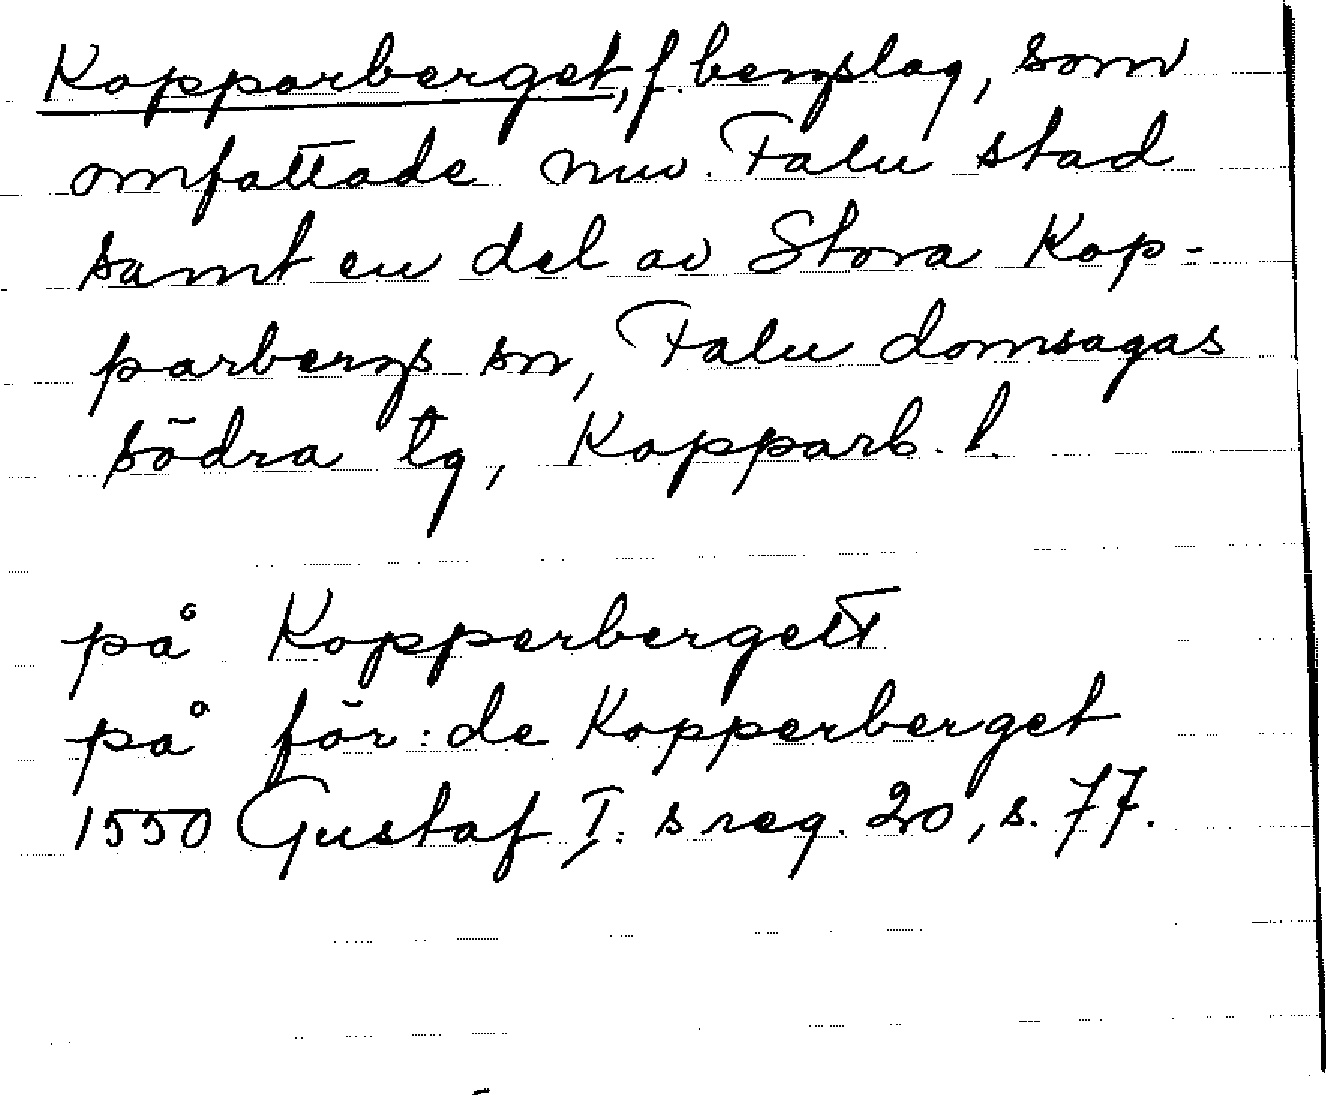 Kopparberget, f. bergslag, som
omfattade nuv. Falu stad
samt en del av Stora Kop-
parbergs sn, Falu domsagas
södra tg, Kopparb. l.
på Kopperbergett
på för:de Kopperberget
1550 Gustaf I:s reg. 20, s. 77.